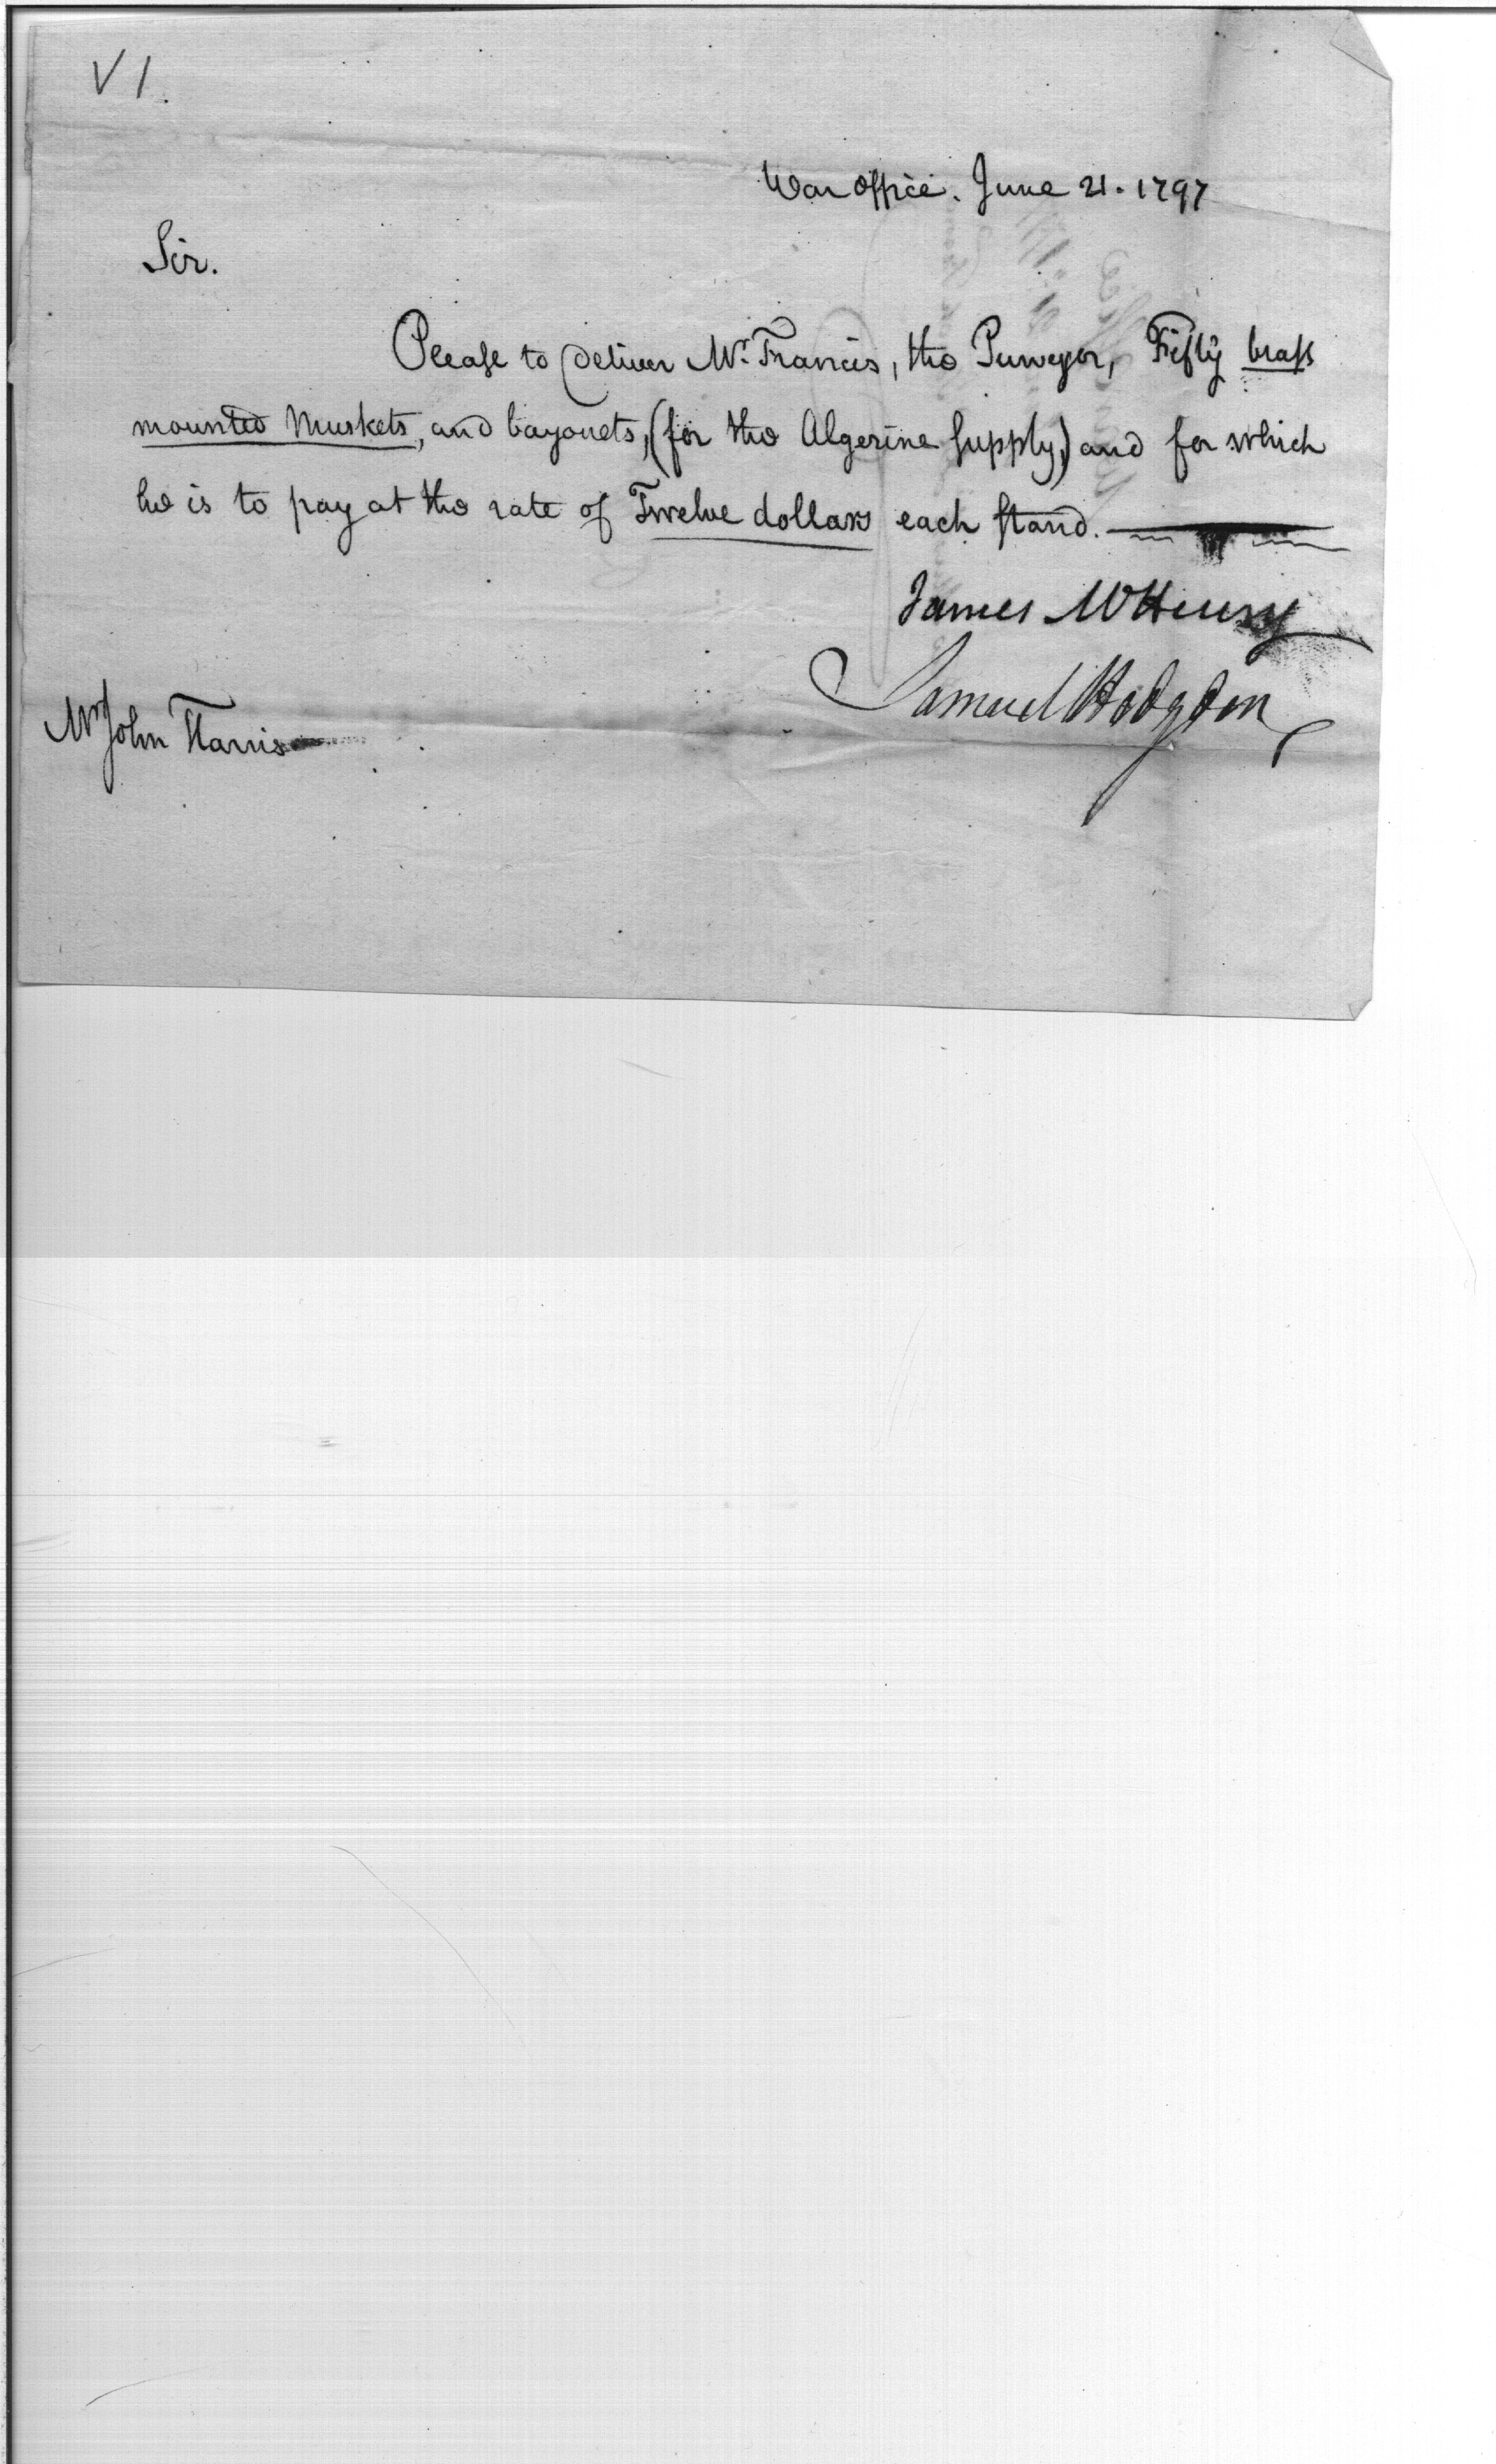 V 1.
War Office. June 21. 1797
Sir.
Please to deliver Mr. Francis, the Purveyor, Fifty brass
mounted Muskets, and bayonets, (for the Algerine Supply,) and for which
he is to pay at the rate of Twelve dollars each stand.
James McHenry
Samuel Hodgdon
Mr John Harris